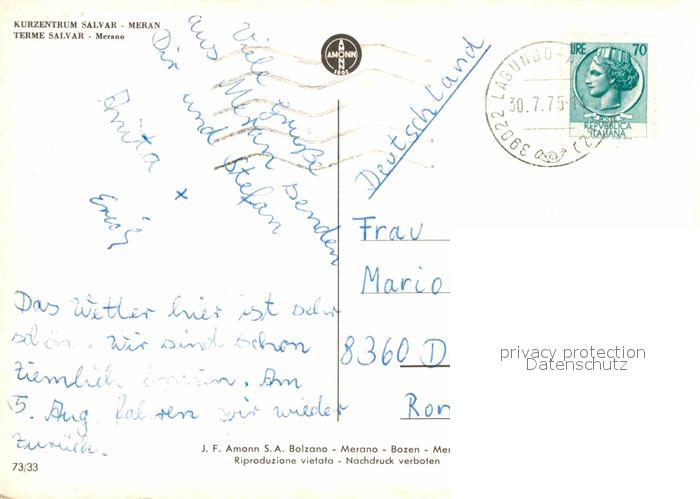 KURZENTRUM SALVAR - MERAN
TERME SALVAR - Merano
AMONN
1802
LIRE 70
REPUBBLICA
ITALIANA
39022 LAGUNDO
30.7.75
Viele Grüße
aus Meran senden
Dir und Stefan
Anita
x
Erich
Das Wetter hier ist sehr
schön. Wir sind schon
ziemlich braun. Am
5. Aug. fahren wir wieder
zurück.
Deutschland
Frau
Mario
8360 D
Ron
privacy protection
Datenschutz
J. F. Amonn S.A. Bolzano - Merano - Bozen - Mer
Riproduzione vietata - Nachdruck verboten
73/33